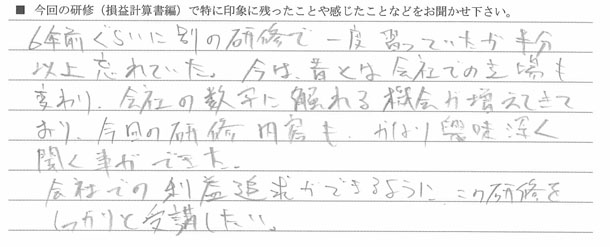 ■ 今回の研修（損益計算書編）で特に印象に残ったことや感じたことなどをお聞かせ下さい。
6年前ぐらいに別の研修で一度習っていたが半分
以上忘れていた。今は、昔とは会社での立場も
変わり、会社の数字に触れる機会が増えてきて
おり、今回の研修内容も、かなり興味深く
聞く事ができた。
会社での利益追求ができるように、この研修を
しっかりと受講したい。